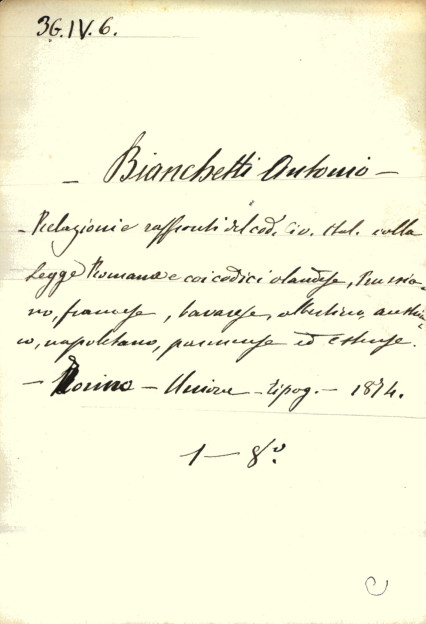 36.IV.6.
— Bianchetti Antonio —
- Relazioni e raffronti del cod. civ. ital. colla
Legge Romana e coi codici olandese, Prussia-
no, francese, bavarese, albertino, austria-
co, napoletano, parmense ed estense.
— Torino — Unione - tipog. — 1874.
1 — 8.°